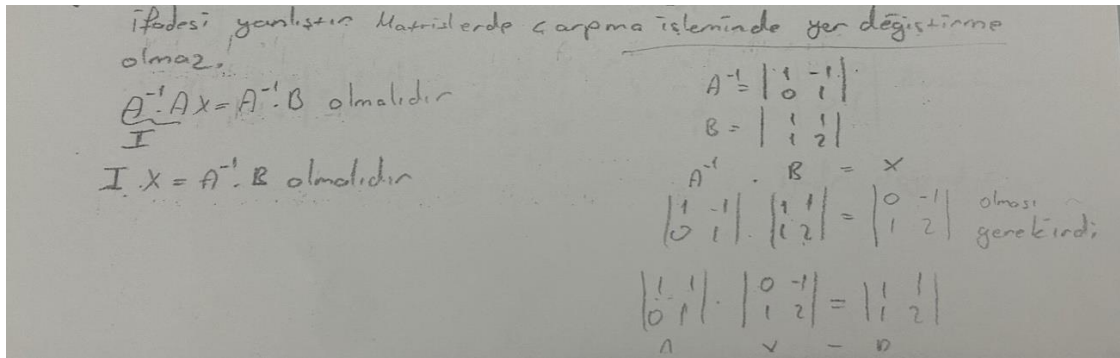 ifadesi yanlıştır Matrislerde çarpma işleminde yer değiştirme
olmaz.
A⁻¹.A X = A⁻¹.B olmalıdır
I
I.X = A⁻¹.B olmalıdır
A⁻¹ = |1 -1|
|0 1|
B = |1 1|
|1 2|
A⁻¹ . B = X
|1 -1| . |1 1| = |0 -1| olması
|0 1| |1 2| |1 2| gerekirdi
|1 1| . |0 -1| = |1 1|
|0 1| |1 2| |1 2|
A X = B